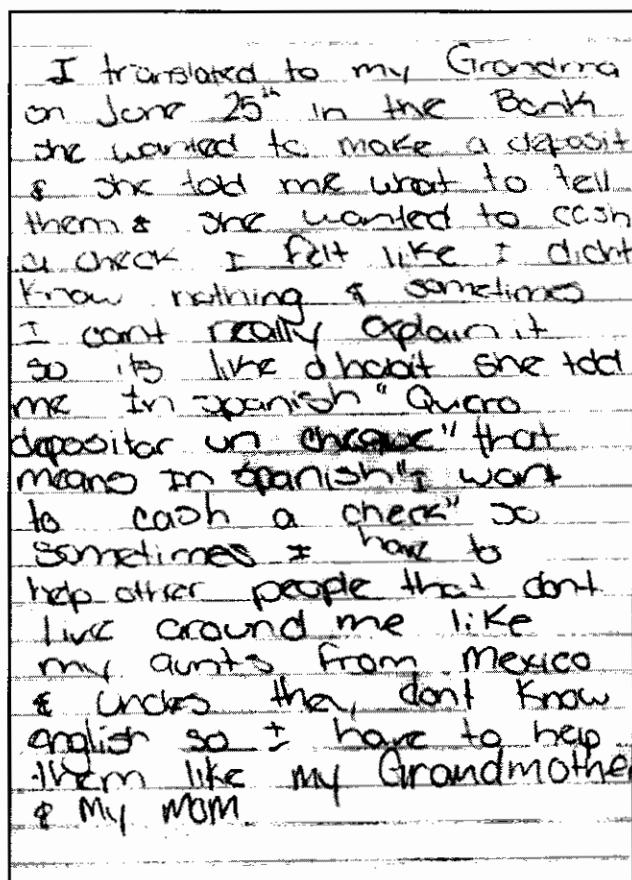 I translated to my Grandma
on June 25th in the Bank
she wanted to make a deposit
& she told me what to tell
them & she wanted to cash
a check I felt like I didnt
know nothing & sometimes
I cant really explain it
so its like a habit she told
me In spanish "Quero
depositar un cheque" that
means In spanish "I want
to cash a check" so
sometimes I have to
help other people that dont
live around me like
my aunts from Mexico
& uncles they dont know
english so I have to help
them like my Grandmother
& My mom.